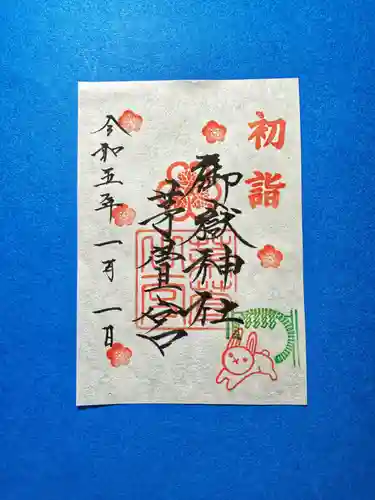 初詣
御嶽神社
茅萱宮
令和五年 一月 一日